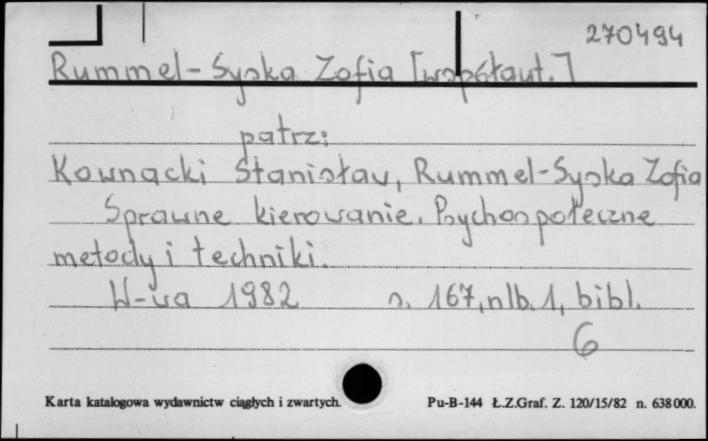 270494
Rummel-Syska Zofia [współaut.]
patrz:
Kownacki Stanisław, Rummel-Syska Zofia
Sprawne kierowanie. Psychospołeczne
metody i techniki.
W-wa 1982 s. 167, nlb. 1, bibl.
6
Karta katalogowa wydawnictw ciągłych i zwartych. Pu-B-144 Ł.Z.Graf. Z. 120/15/82 n. 638000.